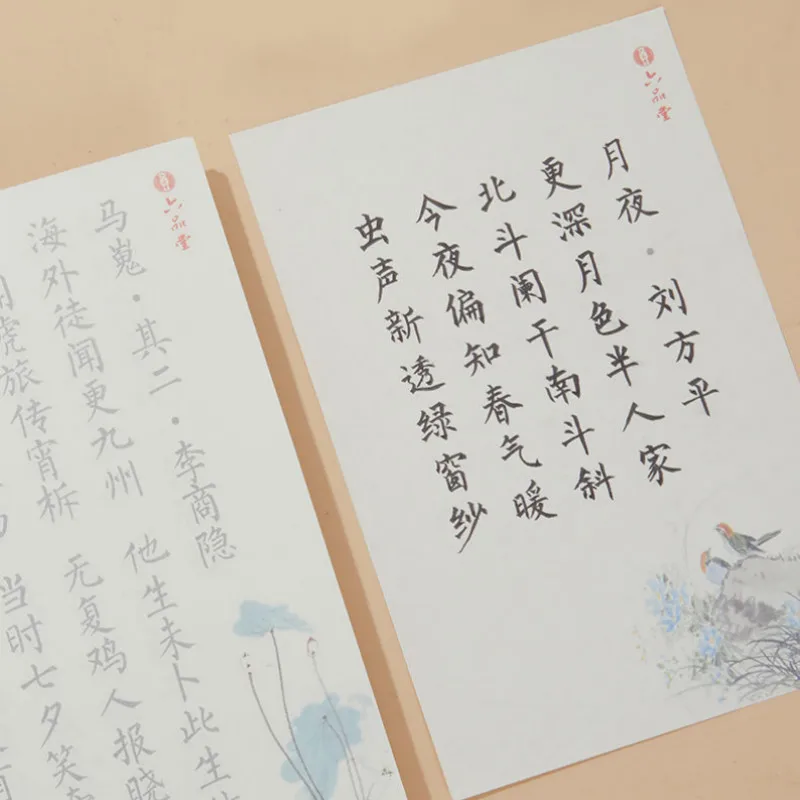 六品堂
月夜·刘方平
更深月色半人家
北斗阑干南斗斜
今夜偏知春气暖
虫声新透绿窗纱
六品堂
马嵬·其二·李商隐
海外徒闻更九州 他生未卜此生
虎旅传宵柝 无复鸡人报晓
当时七夕笑